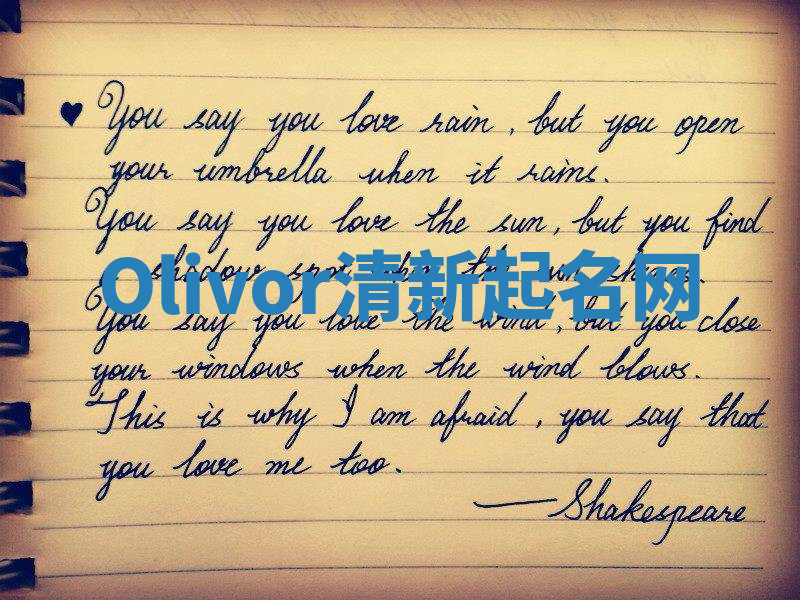 ♥ You say you love rain, but you open
your umbrella when it rains.
You say you love the sun, but you find
shadow spot when the sun shines.
Olivor清新起名网
You say you love the wind, but you close
your windows when the wind blows.
This is why I am afraid, you say that
you love me too.
—Shakespeare